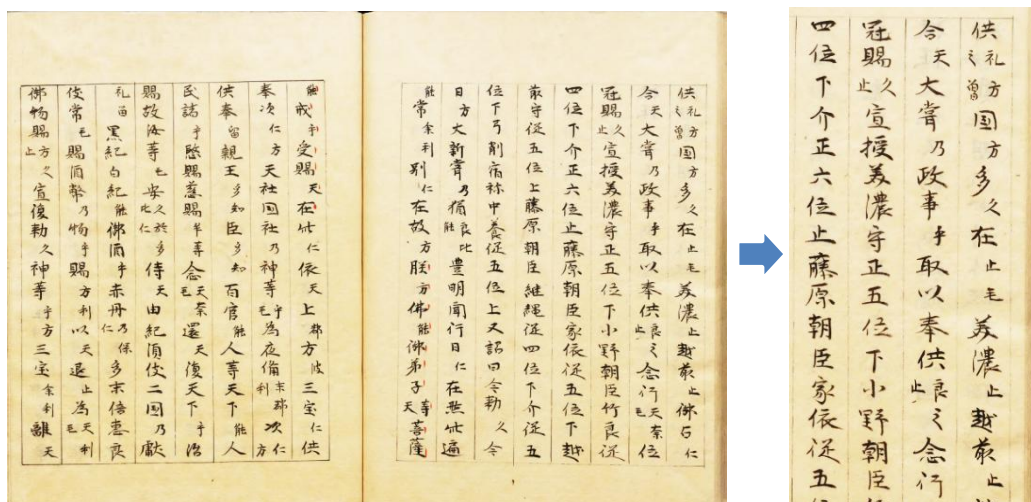 供礼方之曽国方多久在止毛美濃止越前止御占仁
今天大嘗乃政事乎取以奉供良之止念行天奈毛位
冠賜久止宣授美濃守正五位下小野朝臣竹良従
四位下介正六位上藤原朝臣家依従五位下越
前守従五位上藤原朝臣継縄従四位下介従五
位下弓削宿祢牛養従五位上又詔曰今勅久今
日方大新嘗乃猶良比能豊明聞行日仁在然此遍
能常余利別仁在故方朕方佛能御弟子等天菩薩
能戒乎受賜天在此仁依天上都方波三宝仁供
奉次仁方天社国社乃神等乎毛為夜備末都利次仁方
供奉留親王多知臣多知百官能人等天下能人
民諸乎愍賜慈賜牟等念天奈毛還天復天下乎治
賜故汝等毛安久於多比仁侍天由紀須伎二国乃献
礼留黒紀白紀能御酒乎赤丹乃保仁多末倍恵良
伎常毛賜酒幣乃物乎賜方利以天退止為天利毛
御物賜方久止宣復勅久神等乎方三宝余利離天
供礼方之曽国方多久在止毛美濃止越前止
今天大嘗乃政事乎取以奉供良之止念行
冠賜久止宣授美濃守正五位下小野朝臣
四位下介正六位上藤原朝臣家依従五位